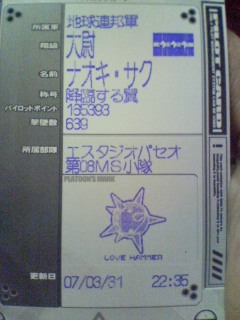 所属軍 地球連邦軍
階級 大尉
名前 ナオキ・サク
称号 降臨する翼
パイロットポイント 165393
撃墜数 639
所属部隊 エスタジオパセオ
第08MS小隊
PLATOON'S MARK
LOVE HAMMER
更新日 07/03/31 22:35
PILOT CARD